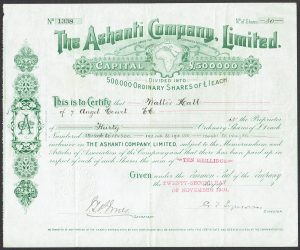 Nº 1338 Nº of Shares 30
The Ashanti Company, Limited.
CAPITAL £500000
DIVIDED INTO
500,000 ORDINARY SHARES OF £1 EACH
This is to Certify that Walter Hall
of 7 Angel Court E.C.
is the Proprietor
of Thirty Ordinary Shares of £1 each
Numbered
inclusive in THE ASHANTI COMPANY, LIMITED, subject to the Memorandum and
Articles of Association of the Company and that there has been paid up in
respect of each of such Shares the sum of TEN SHILLINGS
Given under the Common Seal of the Company
TWENTY-SECOND DAY
OF NOVEMBER